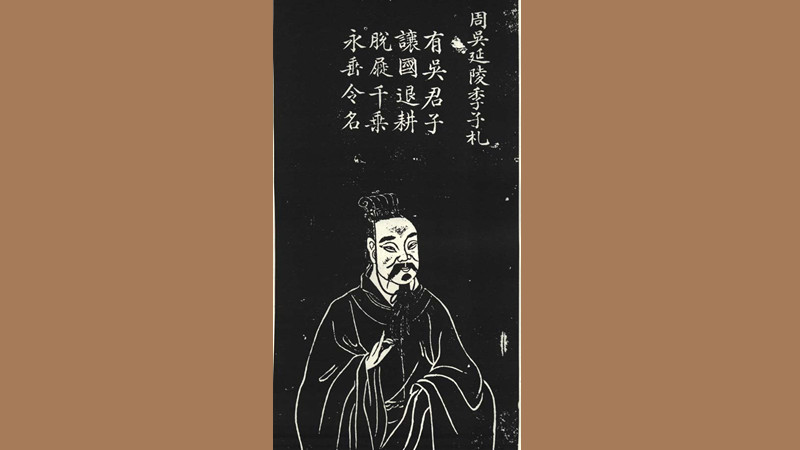 周吳延陵季子札
有吳君子
讓國退耕
脫屣千乘
永垂令名